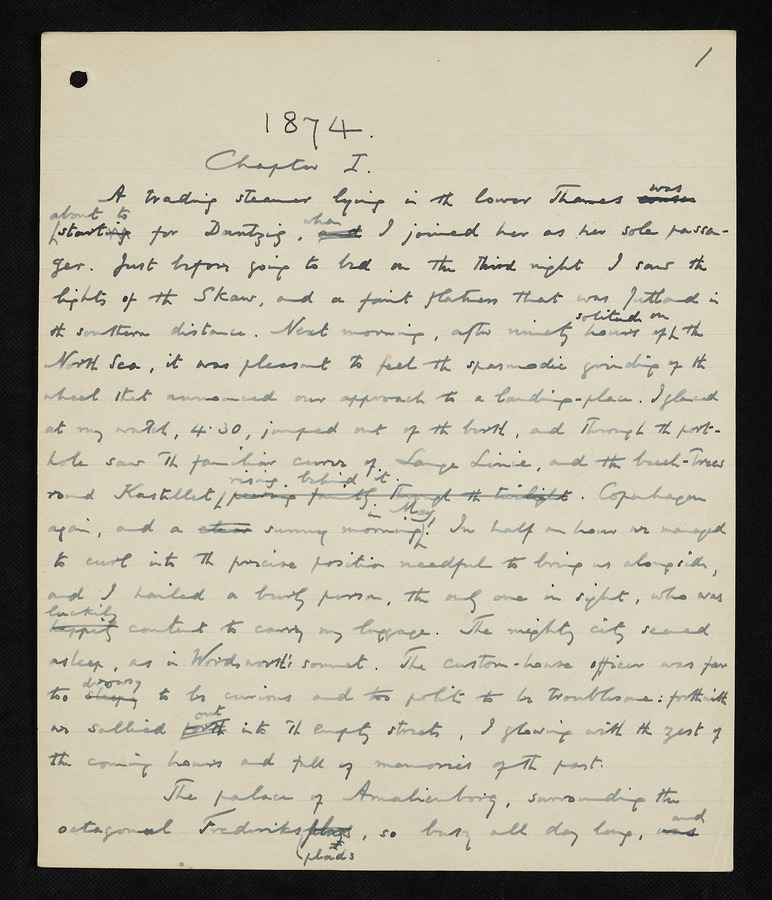 1
1874.
Chapter I.
A trading steamer lying in th lower Thames was
about to start for Dantzig, when I joined her as her sole passa-
ger. Just before going to bed on the third night I saw the
lights of th Skaw, and a faint flatness that was Jutland in
th southern distance. Next morning, after ninety hours solitude on th
North Sea, it was pleasant to feel th spasmodic grinding of th
wheel that announced our approach to a landing-place. I glanced
at my watch, 4.30, jumped out of th berth, and through th port-
hole saw th familiar curve of Lange Linie, and th beech-trees
round Kastellet, peering faintly through th twilight rising behind it. Copenhagen
again, and a clear sunny morning in May! In half an hour we managed
to curl into th precise position needful to bring us alongside,
and I hailed a burly person, the only one in sight, who was
happily luckily content to carry my luggage. The mighty city seemed
asleep, as in Wordsworth's sonnet. The custom-house officer was far
too sleepy drowsy to be curious and too polite to be troublesome: forthwith
we sallied forth out into th empty streets, I glowing with th zest of
the coming hours and full of memories of th past.
The palace of Amalienborg, surrounding the
octagonal Frederiksplads, so busy all day long, was and